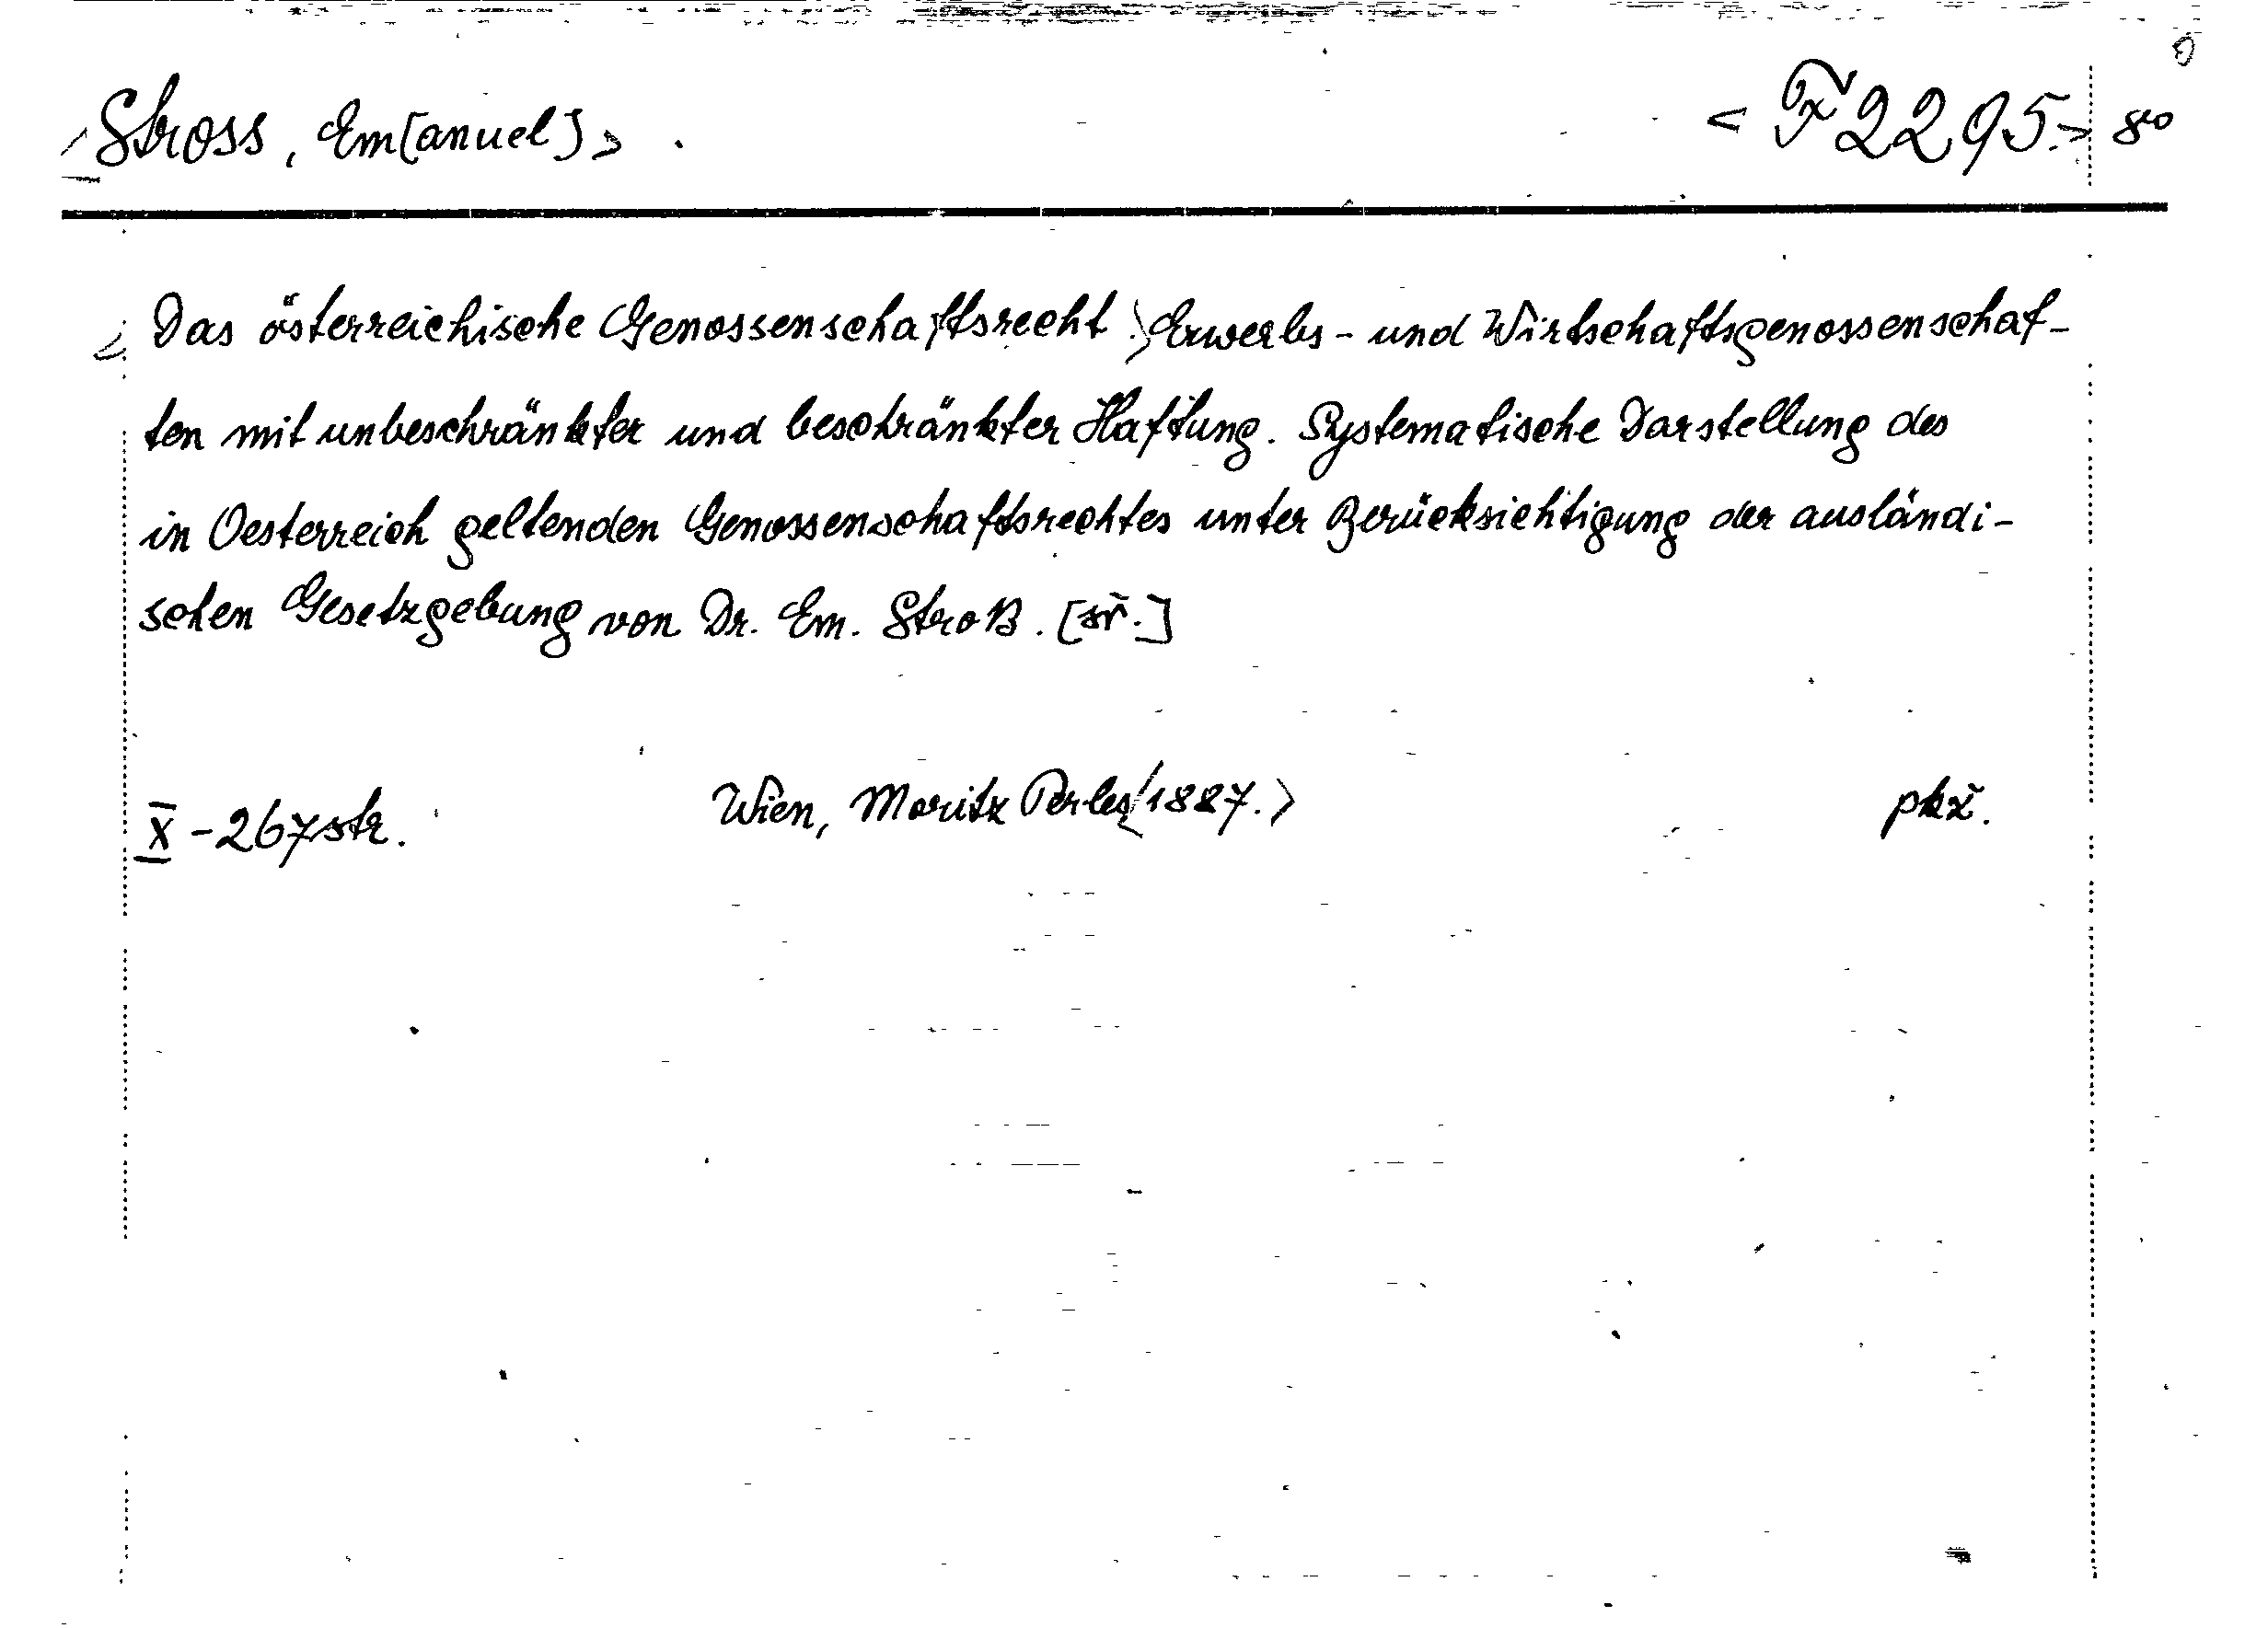 <Stross, Em[anuel]> . <F 2295.> 8°
<Das österreichische Genossenschaftsrecht.> Erwerbs- und Wirtschaftsgenossenschaf-
ten mit unbeschränkter und beschränkter Haftung. Systematische Darstellung des
in Oesterreich geltenden Genossenschaftsrechtes unter Berücksichtigung der ausländi-
schen Gesetzgebung von Dr. Em. Stroß. [sř.]
X - 267 str. Wien, Moritz Perles <1887.> pkž.